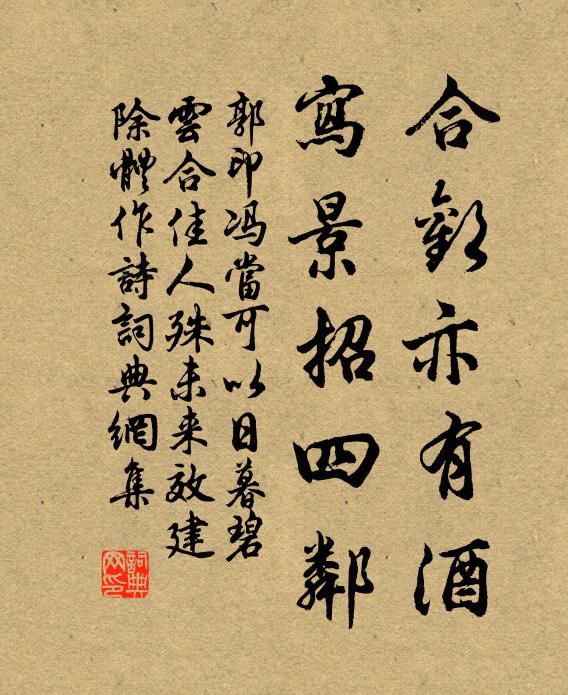 合歡亦有酒
寫景招四鄰
郭印馮當可以日暮碧
雲合佳人殊未来效建
除體作詩詞典網集
詞典网印